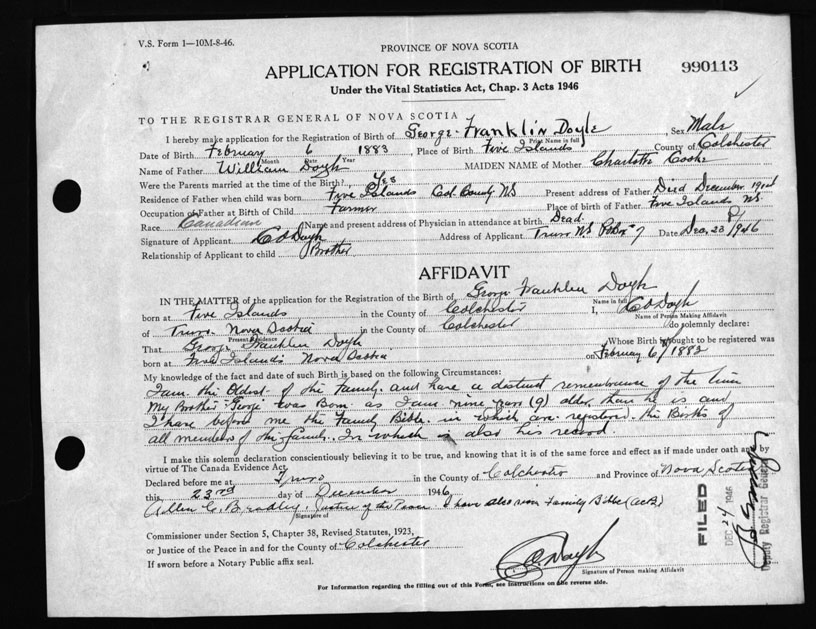 V.S. Form 1—10M-8-46.
PROVINCE OF NOVA SCOTIA
APPLICATION FOR REGISTRATION OF BIRTH 990113
Under the Vital Statistics Act, Chap. 3 Acts 1946
TO THE REGISTRAR GENERAL OF NOVA SCOTIA
I hereby make application for the Registration of Birth of George Franklin Doyle Sex Male
Print Name in full
Date of Birth February 6 1883, Place of Birth Five Islands County of Colchester
Month Date Year
Name of Father William Doyle MAIDEN NAME of Mother Charlotte Cooke
Were the Parents married at the time of the Birth? Yes
Residence of Father when child was born Five Islands Col. County NS Present address of Father Died December
Occupation of Father at Birth of Child Farmer Place of birth of Father Five Islands NS.
Race Canadian (Name and present address of Physician in attendance at birth Dead.
Signature of Applicant Doyle Address of Applicant Truro NS. 7 Date Dec. 23 1946
Relationship of Applicant to child Brother
AFFIDAVIT
IN THE MATTER of the application for the Registration of the Birth of George Franklin Doyle
Name in full
born at Five Islands in the County of Colchester I, Doyle
Name of Person Making Affidavit
of Truro Nova Scotia in the County of Colchester do solemnly declare:
Present Residence
That George Franklin Doyle Whose Birth is sought to be registered was
born at Five Islands Nova Scotia on February 6 1883
My knowledge of the fact and date of such Birth is based on the following Circumstances:
I am the Oldest of the family and have a distinct remembrance of the time
My Brother George was Born as I am nine years (9) older than he is and
I have before me the Family Bible in which are registered the Births of
all members of the family. In which is also his record
I make this solemn declaration conscientiously believing it to be true, and knowing that it is of the same force and effect as if made under oath and by
virtue of The Canada Evidence Act.
Declared before me at Truro in the County of Colchester and Province of Nova Scotia
this 23rd day of December 1946
Allen C. Bradley Justice of the Peace. I have also seen Family Bible (ACB)
Signature of
Commissioner under Section 5, Chapter 38, Revised Statutes, 1923,
or Justice of the Peace in and for the County of Colchester
If sworn before a Notary Public affix seal.
Doyle
Signature of Person making Affidavit
For Information regarding the filling out of this Form, see instructions on the reverse side.
FILED
DEC 24 1946
Deputy Registrar General